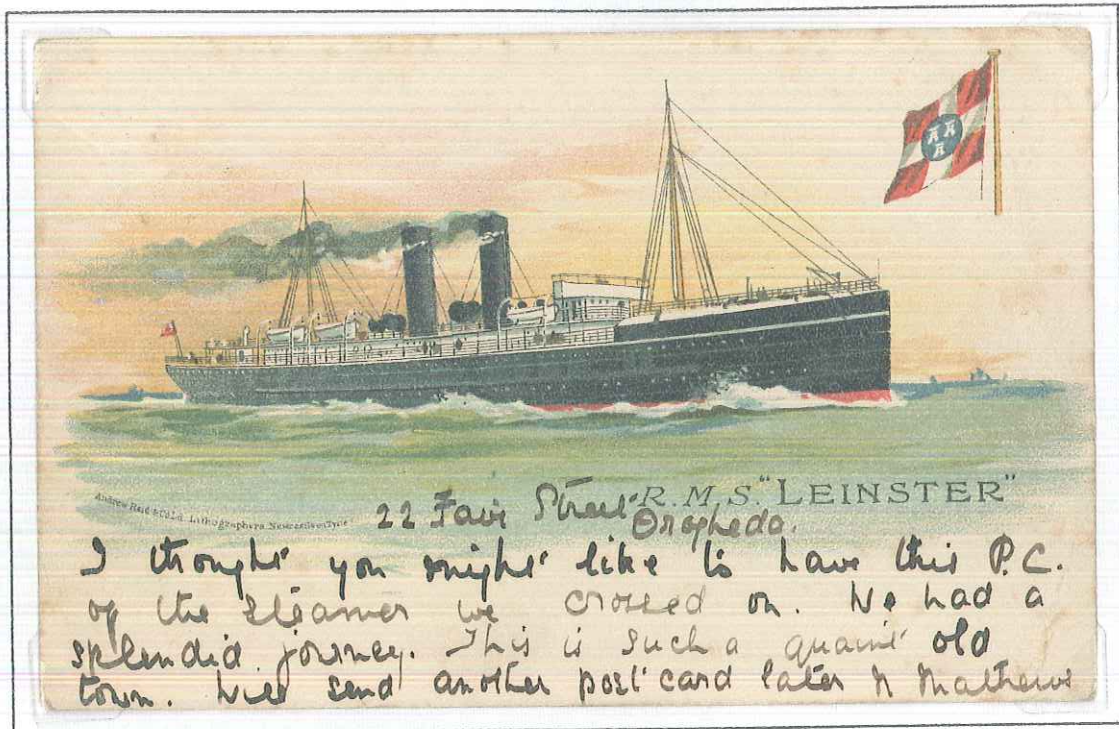 A A
A
R.M.S. "LEINSTER"
Andrew Reid & Co Ld. Lithographers Newcastle on Tyne
22 Fair Street
Drogheda.
I thought you might like to have this P.C.
of the steamer we crossed on. We had a
splendid journey. This is such a quaint old
town. Will send another post card later N Mathews